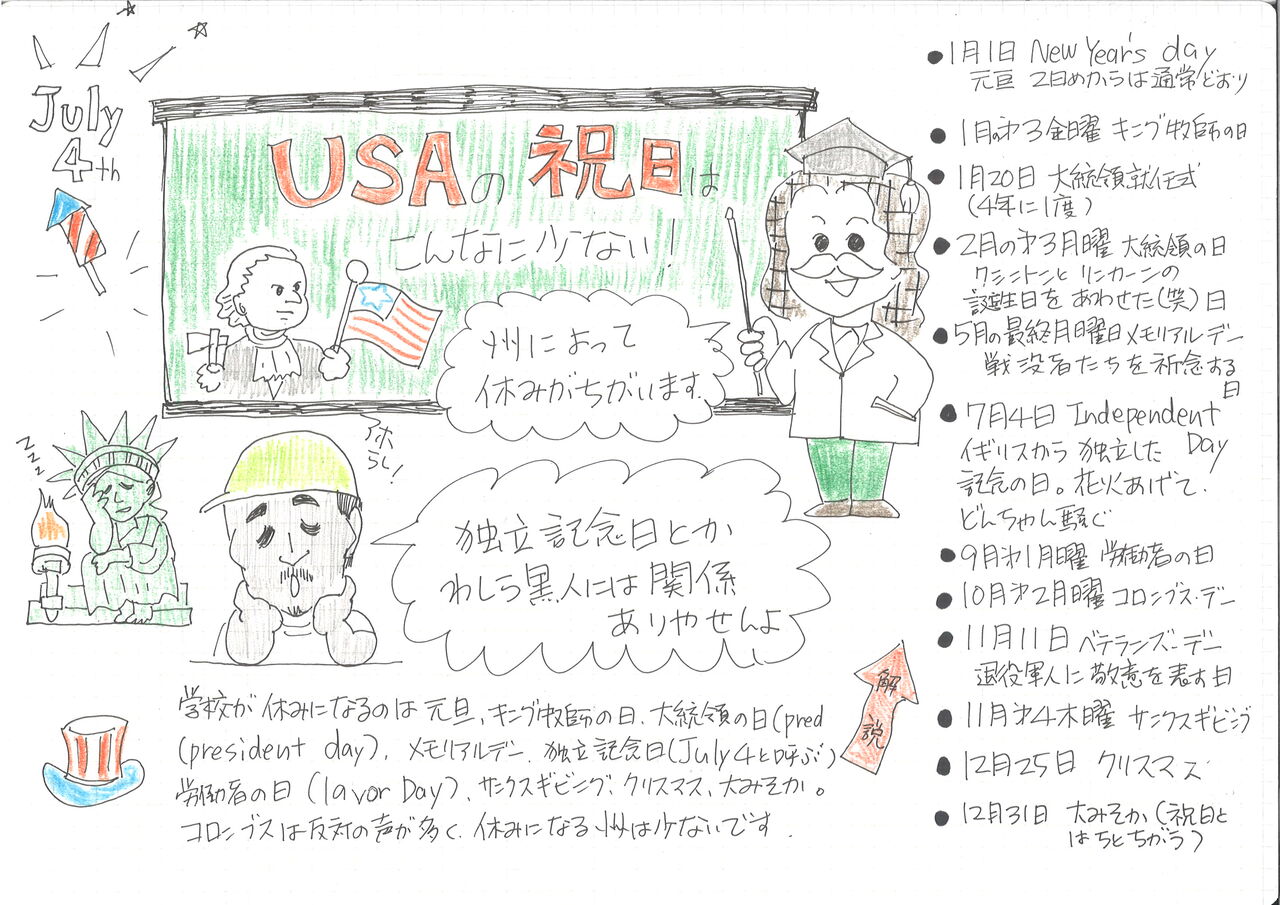 July
4th
USAの祝日は
こんなに少ない!
州によって
休みがちがいます。
zzz
アホらし!
独立記念日とか
わしら黒人には関係
ありやせんよ
学校が休みになるのは元旦、キング牧師の日、大統領の日(pred
(president day)、メモリアルデー、独立記念日(July 4と呼ぶ)
労働者の日(lavor Day)、サンクスギビング、クリスマス、大みそか。
コロンブスは反対の声が多く、休みになる州は少ないです.
解説
●1月1日 New Year's day
元旦 2日めからは通常どおり
●1月の第3金曜 キング牧師の日
●1月20日 大統領就任式
(4年に1度)
●2月の第3月曜 大統領の日
ワシントンと リンカーンの
誕生日を あわせた(笑)日
●5月の最終月曜日メモリアルデー
戦没者たちを祈念する
日
●7月4日 Independent
Day
イギリスから 独立した
記念の日。花火あげて、
どんちゃん騒ぐ
●9月第1月曜 労働者の日
●10月第2月曜 コロンブス・デー
●11月11日 ベテランズ・デー
退役軍人に敬意を表す日
●11月第4木曜 サンクスギビング
●12月25日 クリスマス
●12月31日 大みそか(祝日と
はちとちがう)